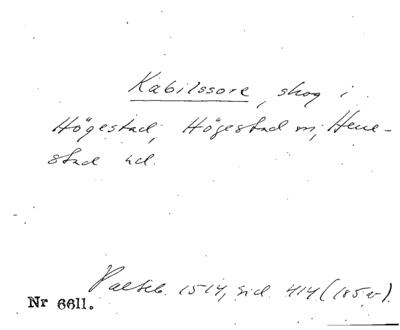 Kabilssore, skog i
Högestad, Högestad sn, Herre-
stad hd.
Palteb. 1514, sid. 414 (185 v).
Nr 6611.